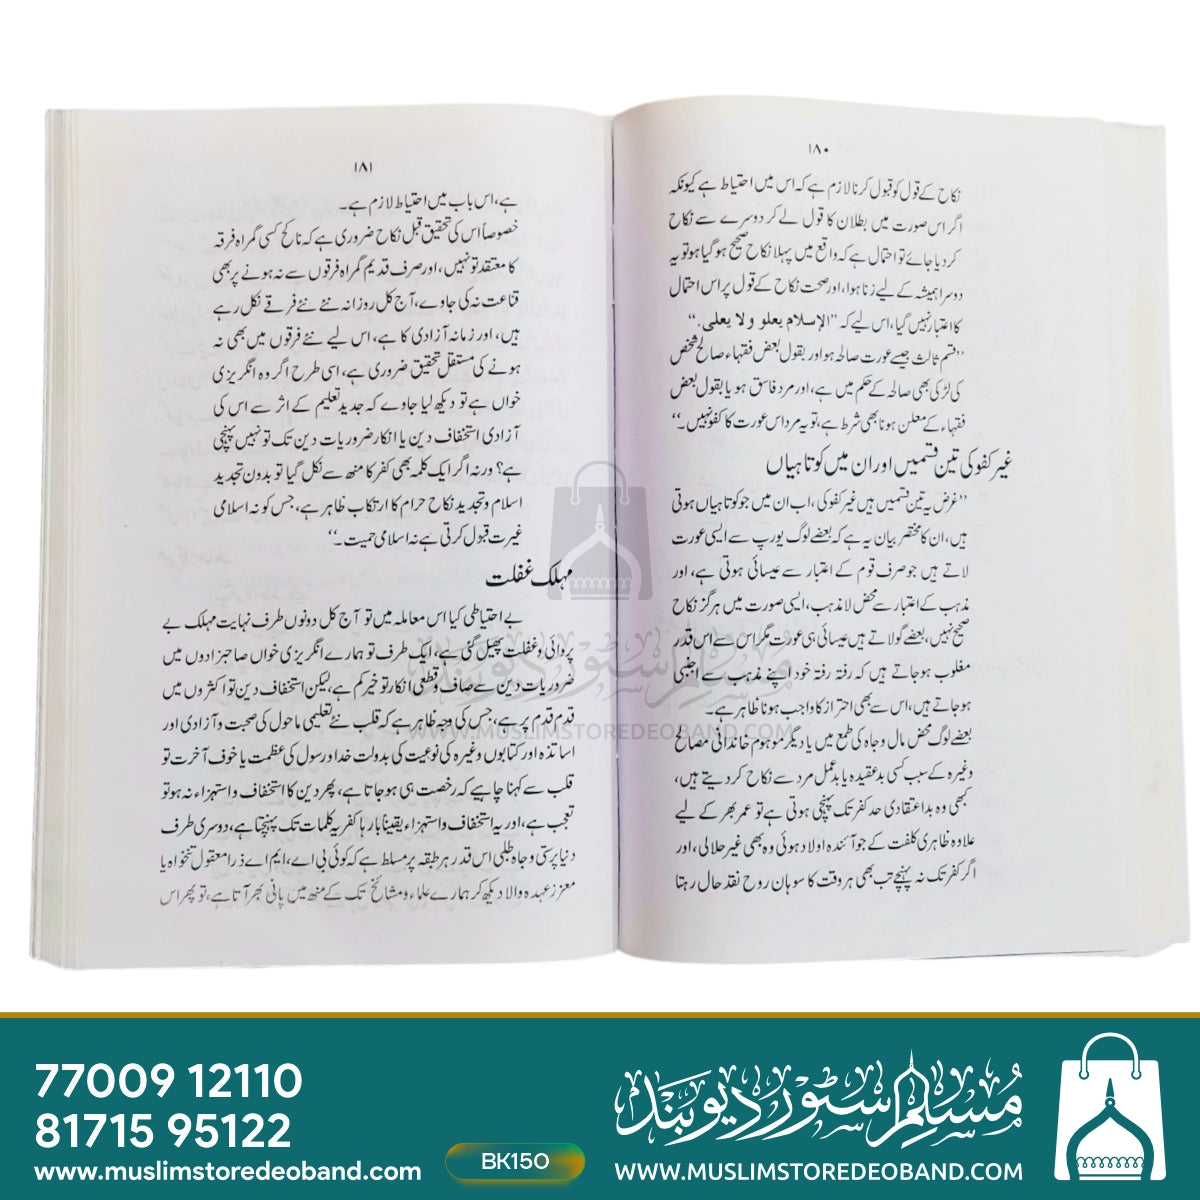 ۱۸۰
نکاح کے قول کو قبول کرنا لازم ہے کہ اس میں احتیاط ہے کیونکہ
اگر اس صورت میں بطلان کا قول لے کر دوسرے سے نکاح
کر دیا جائے تو احتمال ہے کہ واقع میں پہلا نکاح صحیح ہو گیا ہو تو یہ
دوسرا ہمیشہ کے لیے زنا ہوا، اور صحت نکاح کے قول پر اس احتمال
کا اعتبار نہیں گیا، اس لیے کہ ”الإسلام يعلو ولا يعلى.“
”قسم ثالث جیسے عورت صالحہ ہو اور بقول بعض فقہاء صالح شخص
کی لڑکی بھی صالحہ کے حکم میں ہے، اور مرد فاسق ہو یا بقول بعض
فقہاء کے معلن ہونا بھی شرط ہے، تو یہ مرد اس عورت کا کفو نہیں۔“
غیر کفو کی تین قسمیں اور ان میں کوتاہیاں
”غرض یہ تین قسمیں ہیں غیر کفو کی، اب ان میں جو کوتاہیاں ہوتی
ہیں، ان کا مختصر بیان یہ ہے کہ بعضے لوگ یورپ سے ایسی عورت
لاتے ہیں جو صرف قوم کے اعتبار سے عیسائی ہوتی ہے، اور
مذہب کے اعتبار سے محض لا مذہب، ایسی صورت میں ہرگز نکاح
صحیح نہیں، بعضے گو لاتے ہیں عیسائی ہی عورت مگر اس سے اس قدر
مغلوب ہو جاتے ہیں کہ رفتہ رفتہ خود اپنے مذہب سے اجنبی
ہو جاتے ہیں، اس سے بھی احتراز کا واجب ہونا ظاہر ہے۔
بعضے لوگ محض مال و جاہ کی طمع میں یا دیگر موہوم خاندانی مصالح
وغیرہ کے سبب کسی بدعقیدہ یا بدعمل مرد سے نکاح کر دیتے ہیں،
کبھی وہ بداعتقادی حد کفر تک پہنچی ہوتی ہے تو عمر بھر کے لیے
علاوہ ظاہری کلفت کے جو آئندہ اولاد ہوئی وہ بھی غیر حلالی، اور
اگر کفر تک نہ پہنچے تب بھی ہر وقت کا سوہان روح نقد حال رہتا
۱۸۱
ہے، اس باب میں احتیاط لازم ہے۔
خصوصاً اس کی تحقیق قبل نکاح ضروری ہے کہ ناکح کسی گمراہ فرقہ
کا معتقد تو نہیں، اور صرف قدیم گمراہ فرقوں سے نہ ہونے پر بھی
قناعت نہ کی جاوے، آج کل روزانہ نئے نئے فرقے نکل رہے
ہیں، اور زمانہ آزادی کا ہے، اس لیے نئے فرقوں میں بھی نہ
ہونے کی مستقل تحقیق ضروری ہے، اسی طرح اگر وہ انگریزی
خواں ہے تو دیکھ لیا جاوے کہ جدید تعلیم کے اثر سے اس کی
آزادی استخفاف دین یا انکار ضروریات دین تک تو نہیں پہنچی
ہے؟ ورنہ اگر ایک کلمہ بھی کفر کا منھ سے نکل گیا تو بدون تجدید
اسلام و تجدید نکاح حرام کا ارتکاب ظاہر ہے، جس کو نہ اسلامی
غیرت قبول کرتی ہے نہ اسلامی حمیت۔“
مہلک غفلت
بے احتیاطی کیا اس معاملہ میں تو آج کل دونوں طرف نہایت مہلک بے
پروائی و غفلت پھیل گئی ہے، ایک طرف تو ہمارے انگریزی خواں صاحبزادوں میں
ضروریات دین سے صاف و قطعی انکار تو خیر کم ہے، لیکن استخفاف دین تو اکثروں میں
قدم قدم پر ہے، جس کی وجہ ظاہر ہے کہ قلب نئے تعلیمی ماحول کی صحبت و آزادی اور
اساتذہ اور کتابوں وغیرہ کی نوعیت کی بدولت خدا و رسول کی عظمت یا خوف آخرت تو
قلب سے کہنا چاہیے کہ رخصت ہی ہو جاتا ہے، پھر دین کا استخفاف و استہزاء نہ ہو تو
تعجب ہے، اور یہ استخفاف و استہزاء یقیناً بارہا کفریہ کلمات تک پہنچتا ہے، دوسری طرف
دنیا پرستی و جاہ طلبی اس قدر ہر طبقہ پر مسلط ہے کہ کوئی بی اے، ایم اے ذرا معقول تنخواہ یا
معزز عہدہ والا دیکھ کر ہمارے علماء و مشائخ تک کے منھ میں پانی بھر آتا ہے، تو پھر اس
مسلم سٹور دیوبند
WWW.MUSLIMSTOREDEOBAND.COM
77009 12110
81715 95122
www.muslimstoredeoband.com
BK150
مسلم سٹور دیوبند
WWW.MUSLIMSTOREDEOBAND.COM